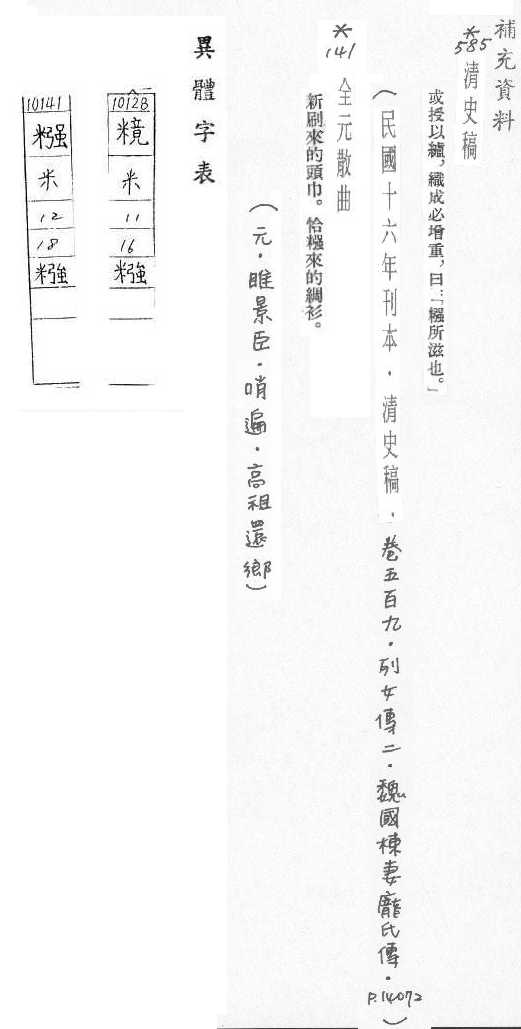 補充資料
*585 清史稿
或授以纑，織成必增重，曰：「糨所滋也。」
（民國十六年刊本．清史稿．卷五百九．列女傳二．魏國棟妻龐氏傳．P.14072）
*141 全元散曲
新刷來的頭巾。恰糨來的綢衫。
（元．睢景臣．哨遍．高祖還鄉）
異體字表
10128
米竟
米
11
16
糨
10141
糨
米
12
18
糨